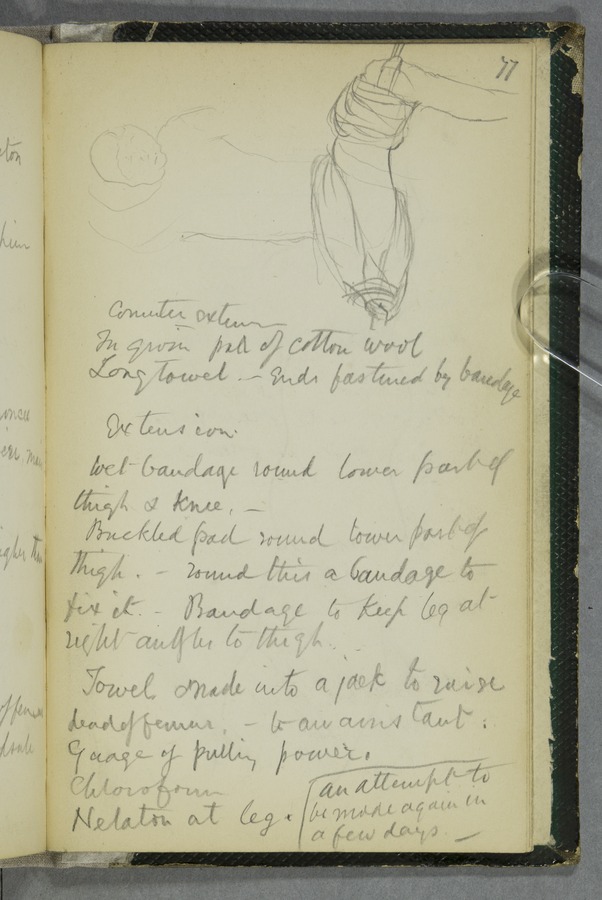 77
Counter exten
In groin pad of cotton wool
Long towel. — Ends fastened by bandage
Extension.
Wet bandage round lower part of
thigh & knee. —
Buckled pad round lower part of
thigh. — round this a bandage to
fix it. — Bandage to keep leg at
right angle to thigh.
Towel made into a jack to raise
head of femur. — to an assistant.
Guage of pulling power.
Chloroform
Nelaton at leg.
an attempt to
be made again in
a few days. —